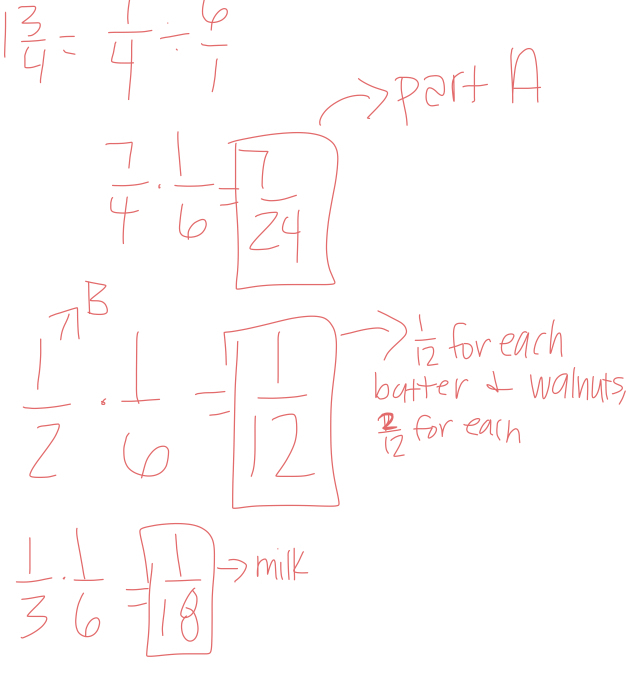 1 3/4 = 1/4 ÷ 6/1
→ part A
7/4 · 1/6 = 7/24
↗ B
1/2 · 1/6 = 1/12 → 1/12 for each
batter & walnuts,
2/12 for each
1/3 · 1/6 = 1/18 → milk